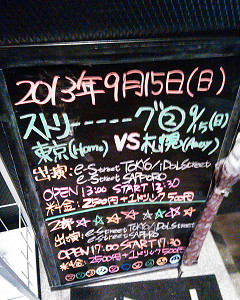 2013年9月15日(日)
ストリーーーーーグ② 9/15(日)
東京(Home) VS 札幌(Away)
出演:e-Street TOKYO/iDOL Street
e-Street SAPPORO
OPEN 13:00 START 13:30
料金:2500円+1ドリンク500円
2部 ☆☆☆☆☆☆
出演:e-Street TOKYO/iDOL Street
e-Street SAPPORO
OPEN 17:00 START 17:30
料金:2500円+1ドリンク500円